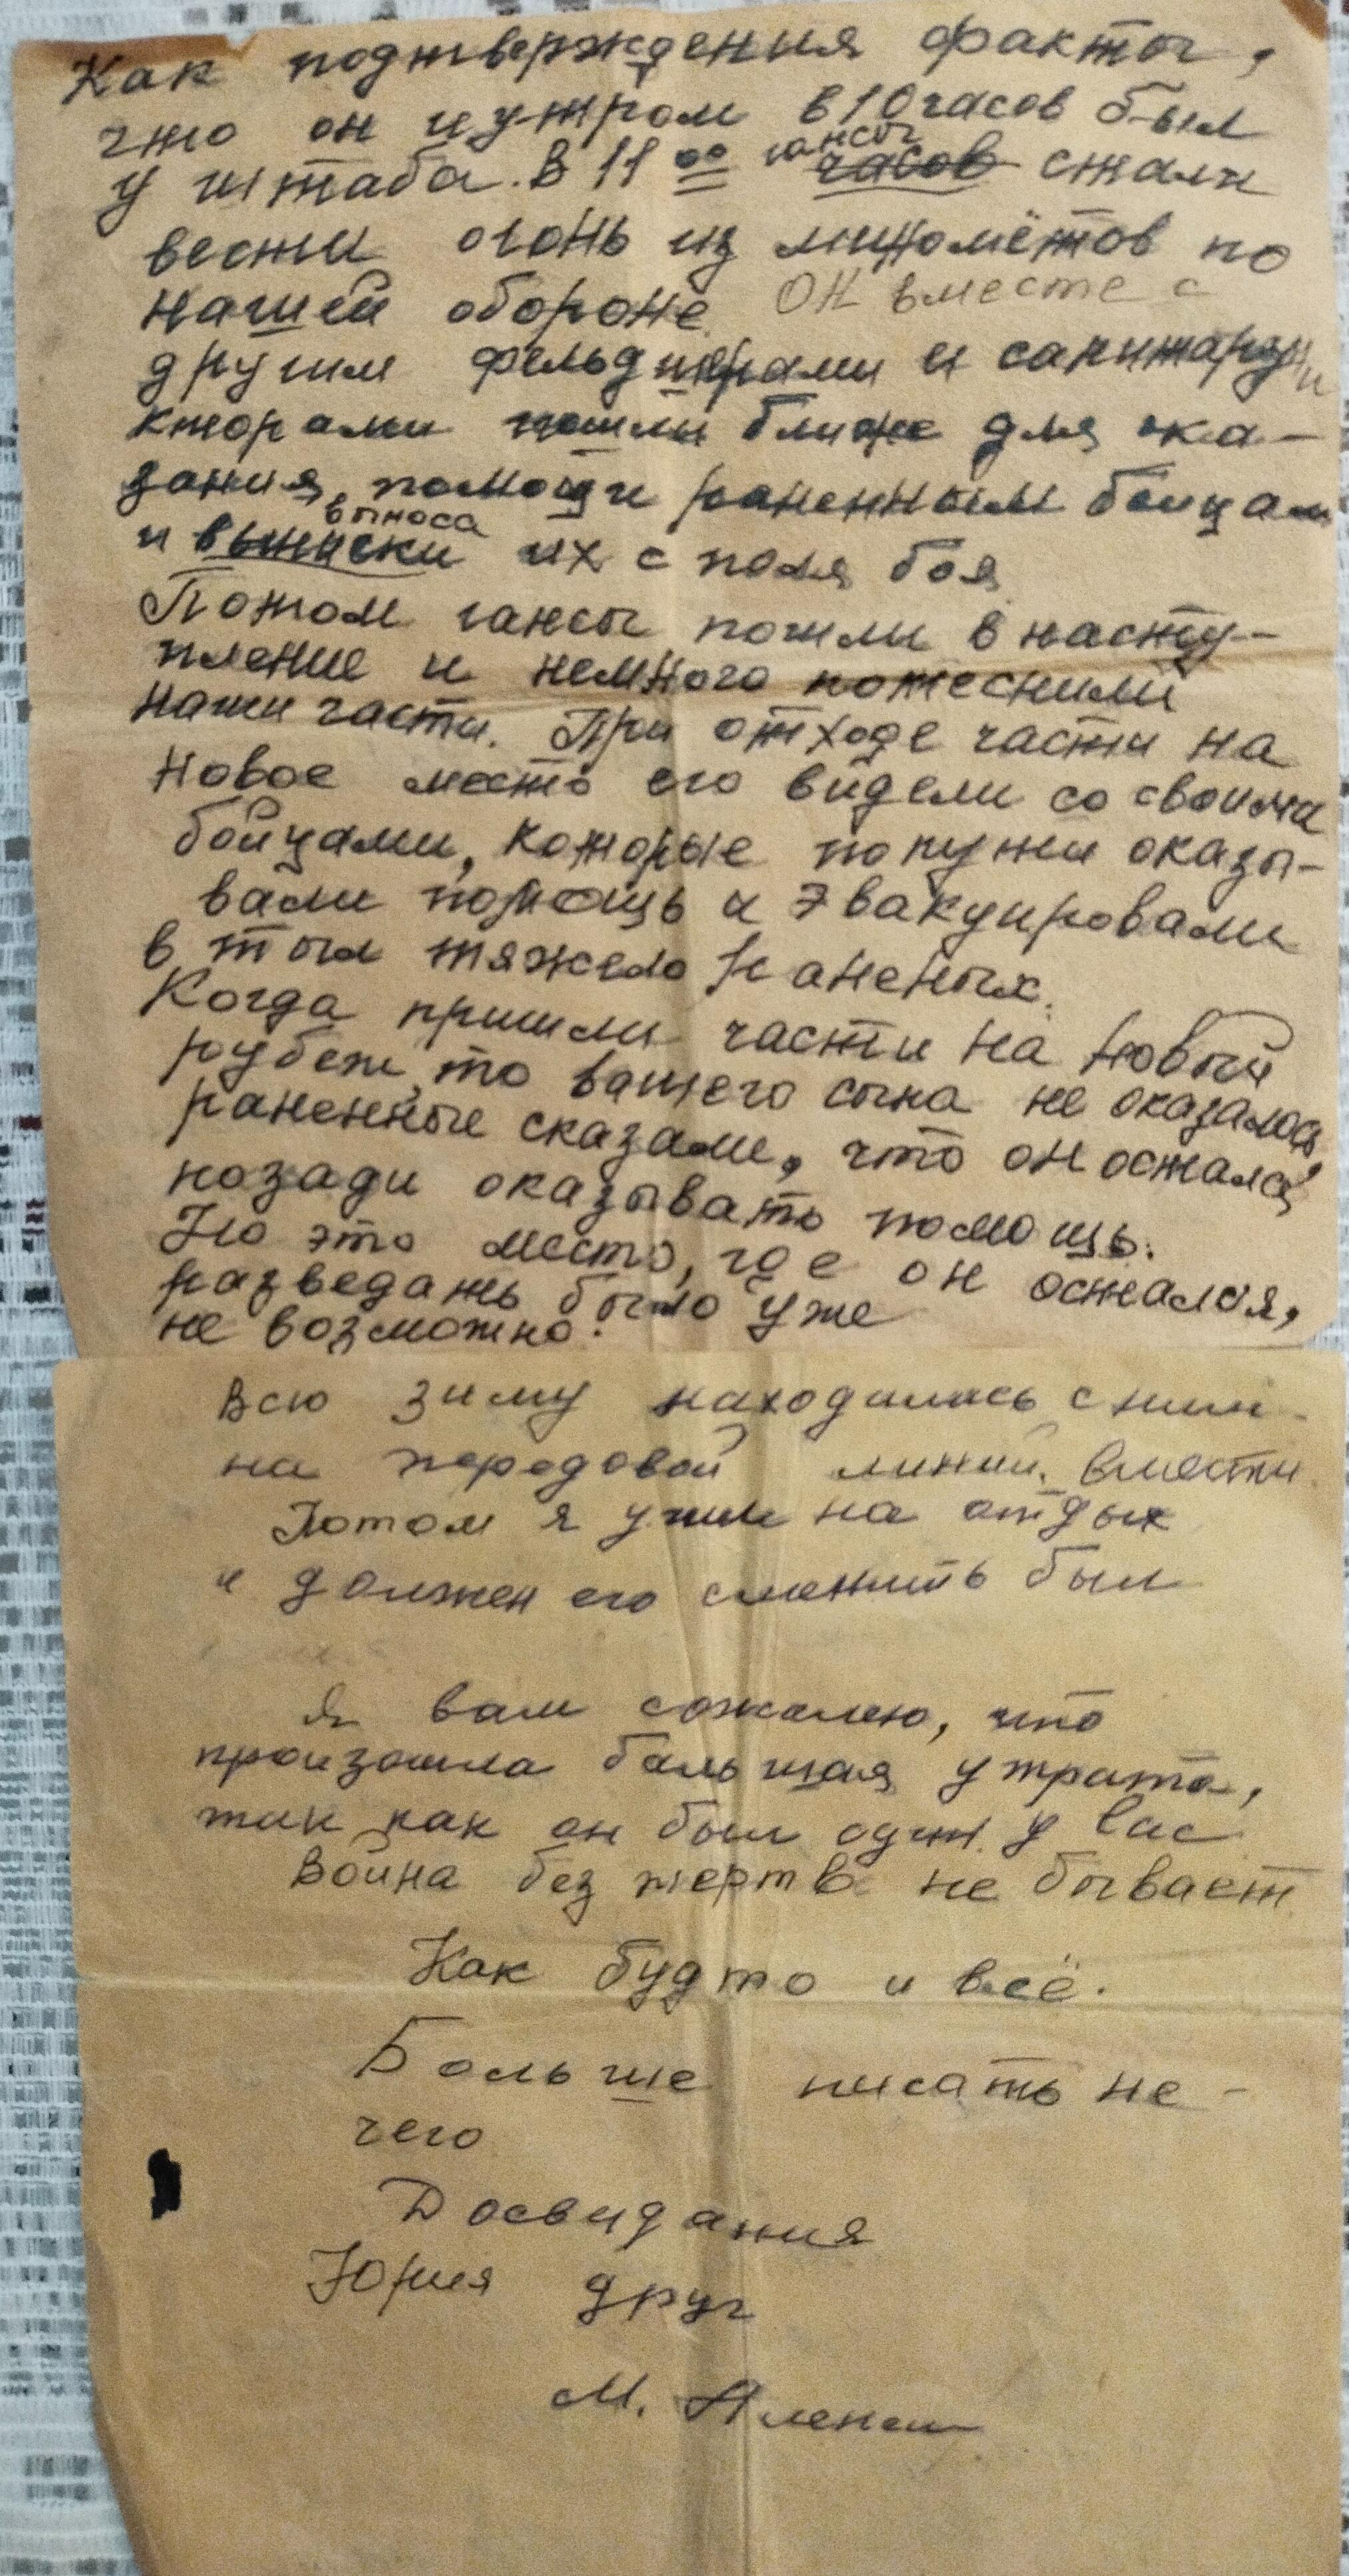 Как подтверждения факты,
что он и утром в 10 часов был
у штаба. В 11 00 гансы часов стали
вести огонь из миномётов по
нашей обороне. Он вместе с
другим фельдшерами и санитарн
кторами пошли ближе для ока-
зания помощи раненным бойцам
и выписки выноса их с поля боя
Потом гансы пошли в насту-
пление и немного потеснили
наши части. При отходе части на
новое место его видели со своими
бойцами, которые попутни оказы-
вали помощь и эвакуировали
в тыл тяжело раненых.
Когда пришли части на новый
рубеж, то вашего сына не оказалось
раненные сказали, что он остался
позади оказывать помощь.
Но это место, где он остался,
разведать было уже
не возможно.
Всю зиму находились с ним
на передовой линии. вмести
Потом я ушел на отдых
и должен его сменить был
Я вам сожалею, что
произошла большая утрата,
так как он был один у вас
Война без жертв не бывает
Как будто и всё.
Больше писать не-
чего
Досвидания
Юрия друг
М.